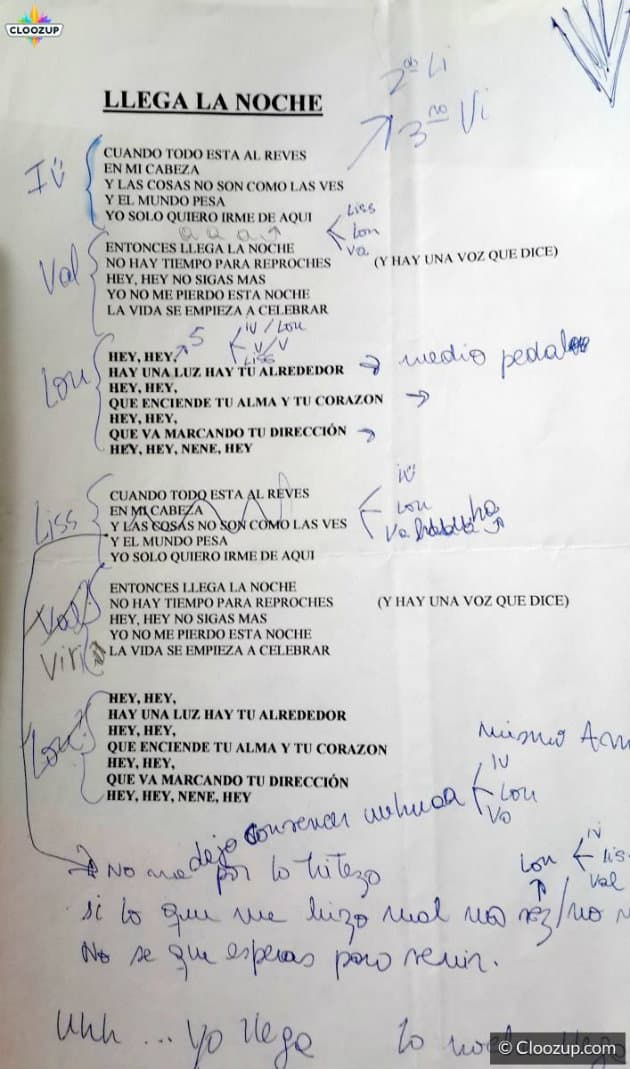 CLOOZUP
2da Li
3no Vi
LLEGA LA NOCHE
CUANDO TODO ESTA AL REVES
Iv
EN MI CABEZA
Y LAS COSAS NO SON COMO LAS VES
Y EL MUNDO PESA
YO SOLO QUIERO IRME DE AQUI
Liss
Lou
Va
a a a
Val
ENTONCES LLEGA LA NOCHE
NO HAY TIEMPO PARA REPROCHES (Y HAY UNA VOZ QUE DICE)
HEY, HEY NO SIGAS MAS
YO NO ME PIERDO ESTA NOCHE
LA VIDA SE EMPIEZA A CELEBRAR
5
IV / Lou
V/V
Liss
Lou
HEY, HEY,
HAY UNA LUZ HAY TU ALREDEDOR medio pedal
HEY, HEY,
QUE ENCIENDE TU ALMA Y TU CORAZON
HEY, HEY,
QUE VA MARCANDO TU DIRECCIÓN
HEY, HEY, NENE, HEY
Liss
CUANDO TODO ESTA AL REVES
EN MI CABEZA
Y LAS COSAS NO SON COMO LAS VES
Y EL MUNDO PESA
YO SOLO QUIERO IRME DE AQUI
iv
Lou
Va
Val
Viri
ENTONCES LLEGA LA NOCHE
NO HAY TIEMPO PARA REPROCHES (Y HAY UNA VOZ QUE DICE)
HEY, HEY NO SIGAS MAS
YO NO ME PIERDO ESTA NOCHE
LA VIDA SE EMPIEZA A CELEBRAR
Lou
HEY, HEY,
HAY UNA LUZ HAY TU ALREDEDOR
HEY, HEY,
QUE ENCIENDE TU ALMA Y TU CORAZON
HEY, HEY,
QUE VA MARCANDO TU DIRECCIÓN
HEY, HEY, NENE, HEY
Mismo
IV
Lou
Va
No me dejo convencer nunca
por lo
Lou
iv
Lis
Val
si lo que me hizo mal
No se que esperas para venir.
Uhh ... Yo llega la
© Cloozup.com